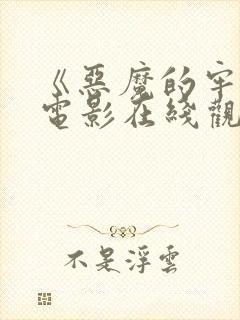 《惡魔的牢
電影在綫觀
不是浮雲